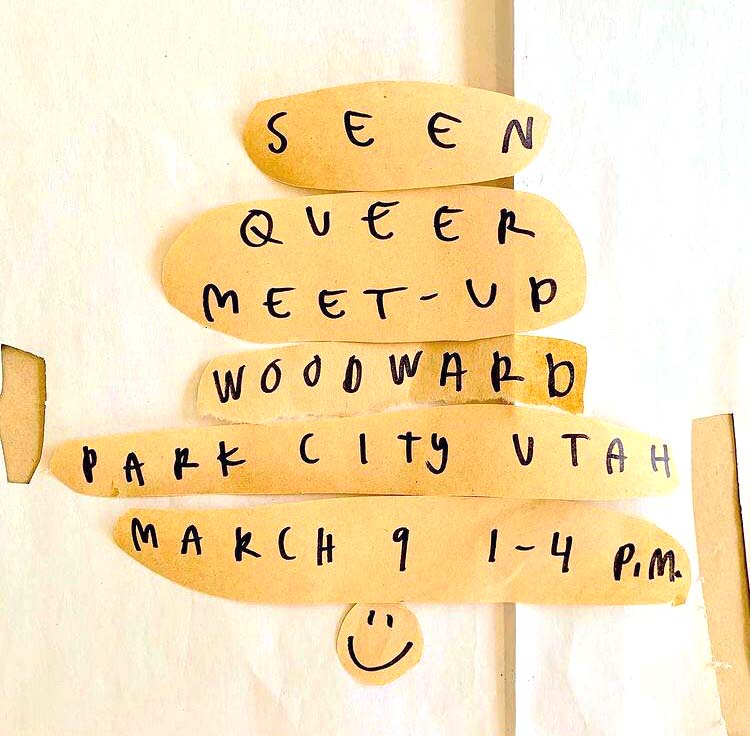 SEEN
QUEER
MEET-UP
WOODWARD
PARK CITY UTAH
MARCH 9 1-4 P.M.